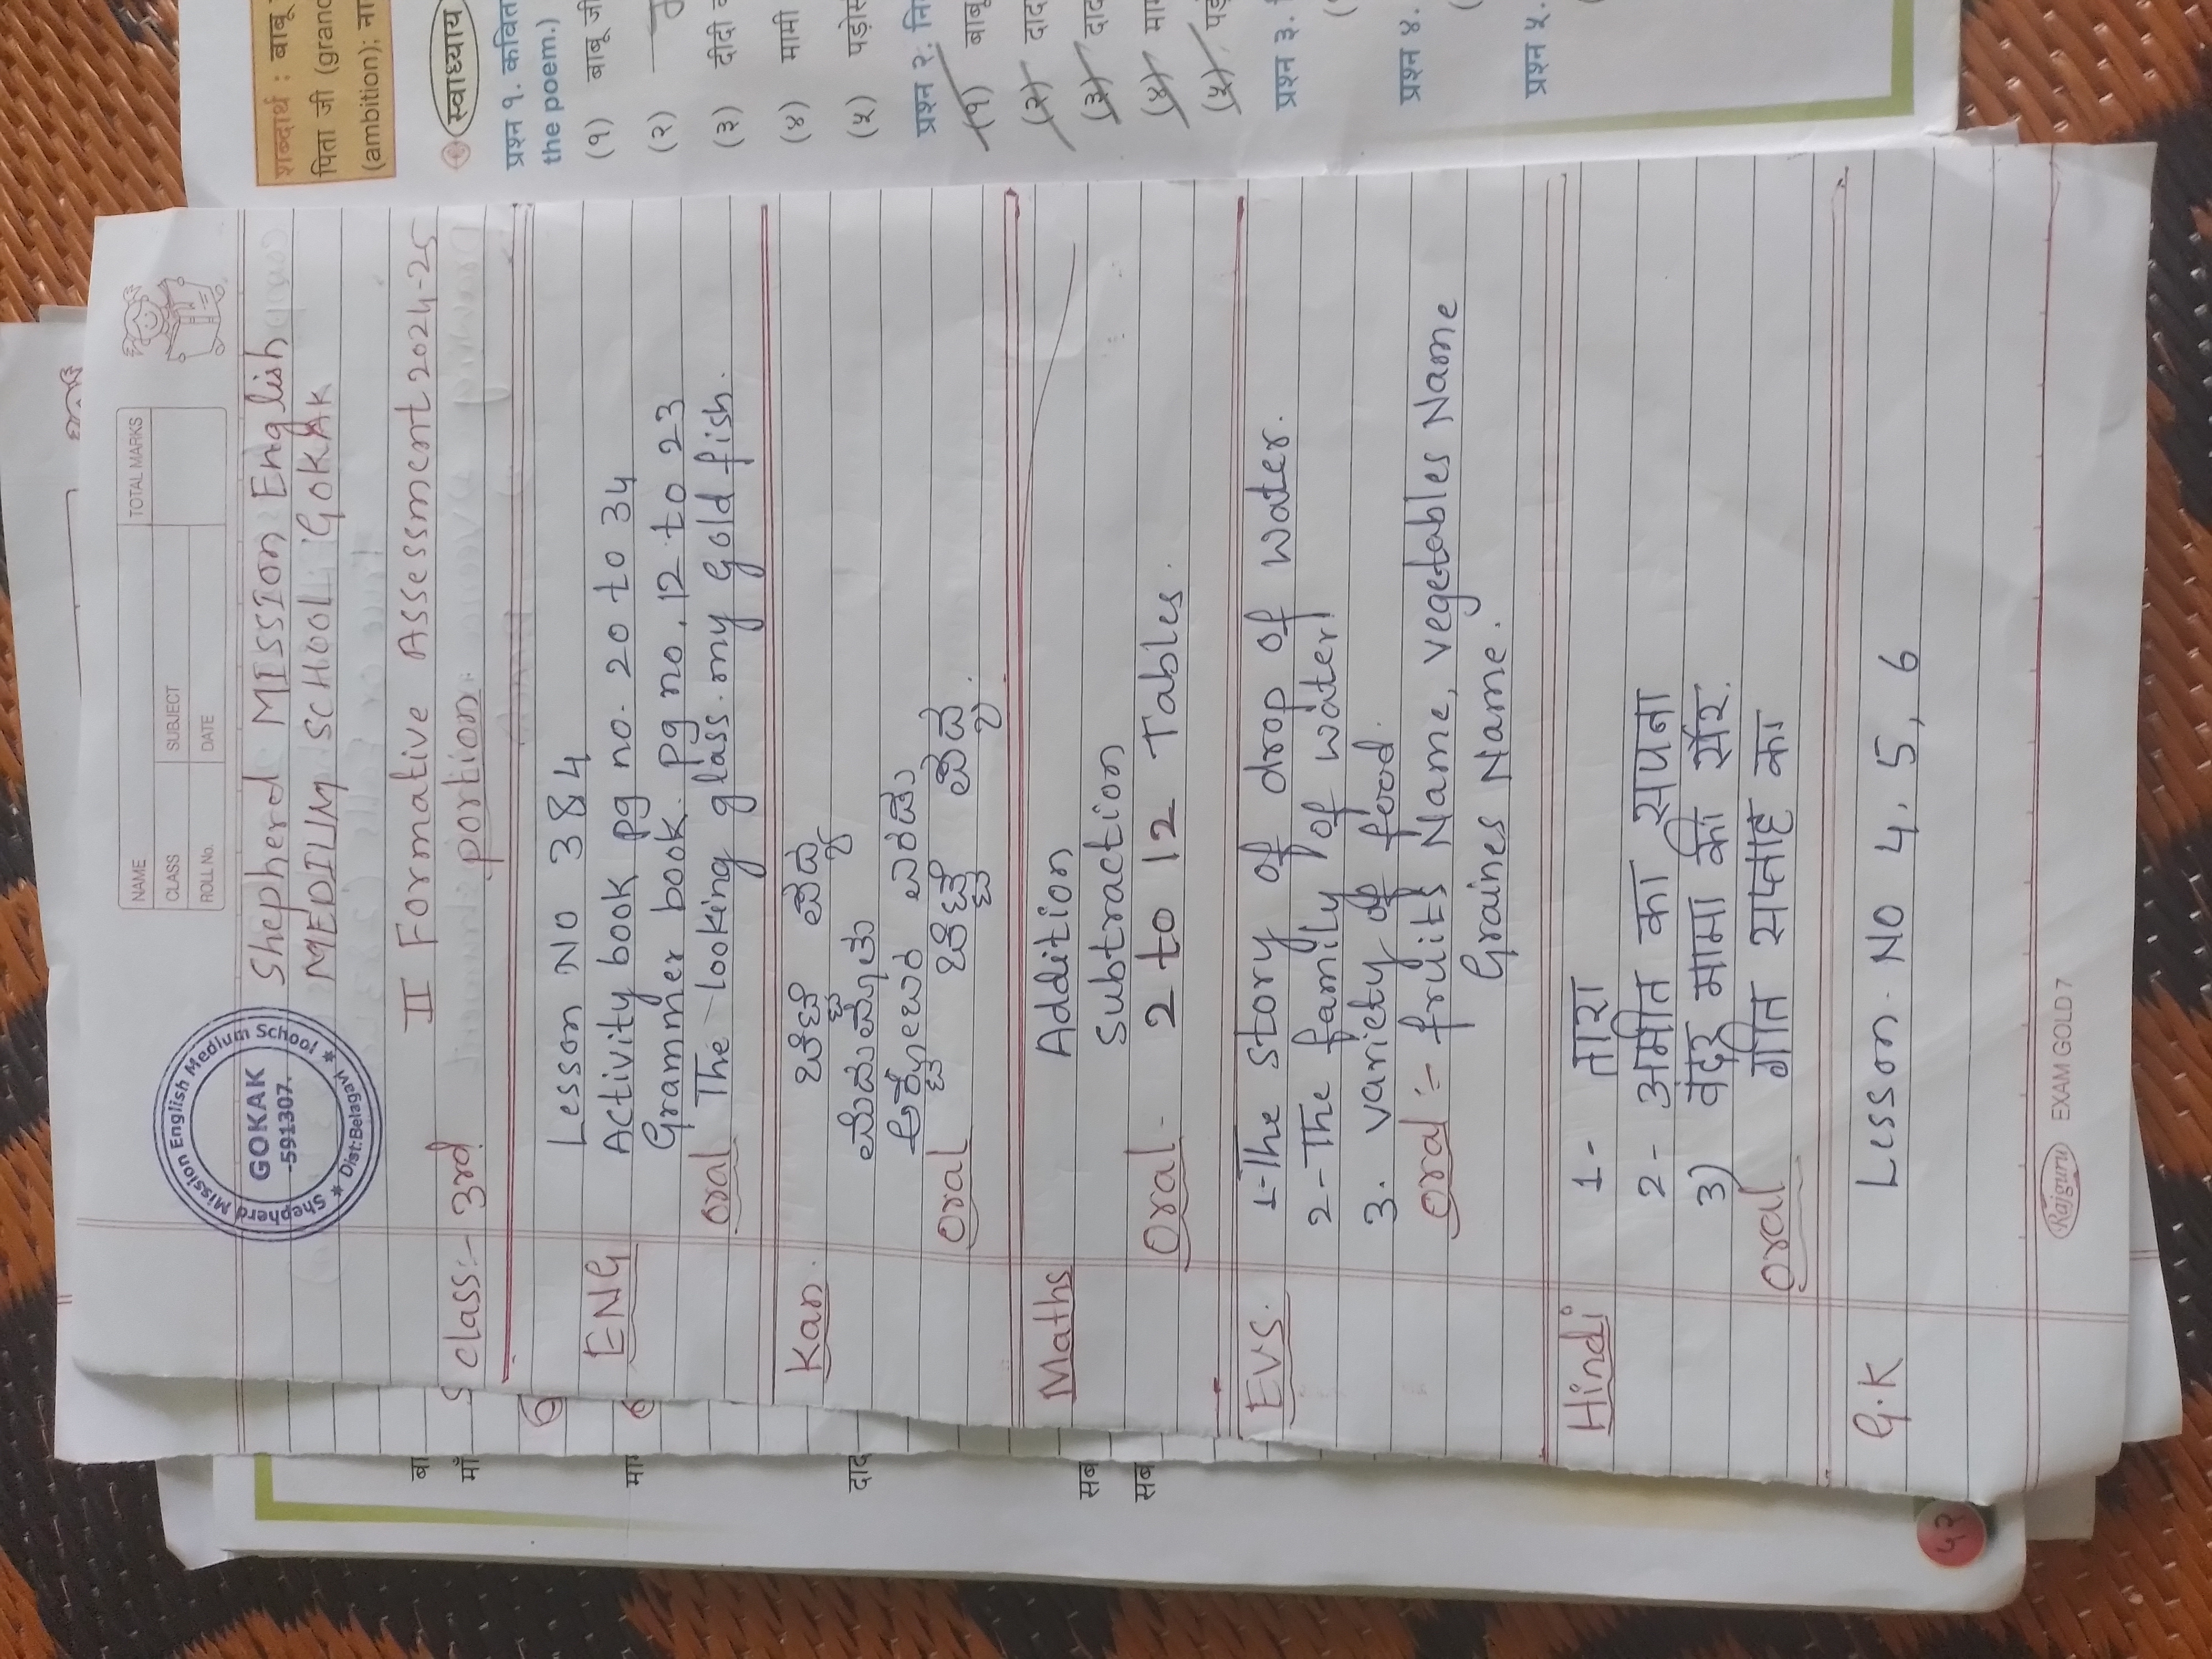 NAME
TOTAL MARKS
CLASS
SUBJECT
ROLL No.
DATE
Shepherd Mission English Medium School
GOKAK
-591307.
Dist:Belagavi
Shepherd MISSION English
MEDIUM SCHOOL GOKAK
II Formative Assessment 2024-25
class:- 3rd portion
ENG Lesson No 3&4
Activity book pg no. 20 to 34
Grammer book. pg no. 12 to 23
oral The looking glass. my gold fish.
Kan.
oral
Maths Addition
Substraction
oral- 2 to 12 Tables.
EVS. 1-The story of drop of water.
2-The family of water
3. variety of food.
oral:- fruits Name, vegetables Name
Graines Name.
Hindi 1- तारा
2- अमीत का सपना
3) बंदर मामा की सैर.
oral गीत सप्ताह का
G.K Lesson. No 4. 5, 6
Rajguru EXAM GOLD 7
शब्दार्थ : बाबू
पिता जी
(ambition); ना
स्वाध्याय
प्रश्न १.
the poem.)
(१) बाबू जी
(२)
(३) दीदी
(४) मामी
(५)
प्रश्न २:
(१) बाबू
(२)
(३)
(४)
(५)
प्रश्न ३.
प्रश्न ४.
प्रश्न ५.
बा
माँ
सब
सब